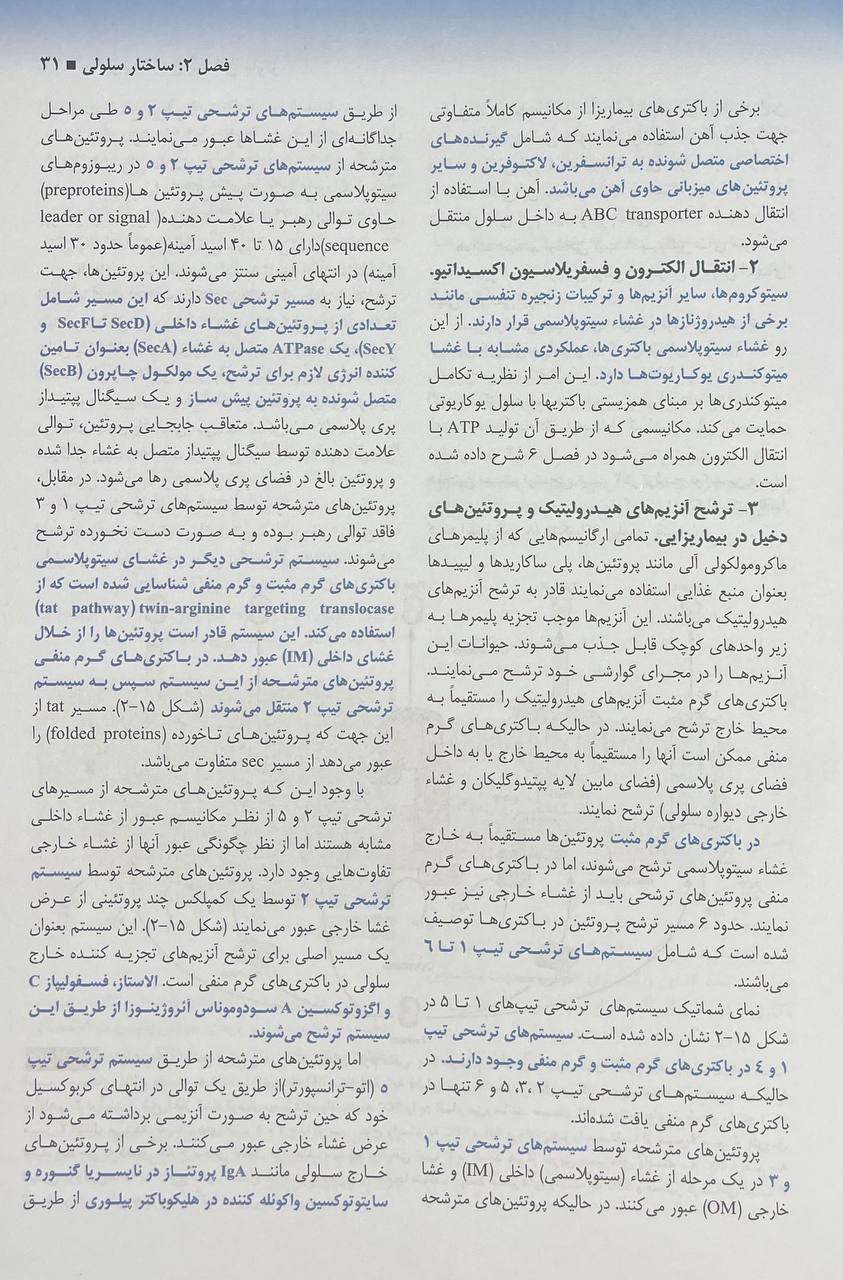 فصل ۲: ساختار سلولی ■ ۳۱
برخی از باکتری‌های بیماریزا از مکانیسم کاملاً متفاوتی
جهت جذب آهن استفاده می‌نمایند که شامل گیرنده‌های
اختصاصی متصل شونده به ترانسفرین، لاکتوفرین و سایر
پروتئین‌های میزبانی حاوی آهن می‌باشد. آهن با استفاده از
انتقال دهنده ABC transporter به داخل سلول منتقل
می‌شود.
۲- انتقال الکترون و فسفریلاسیون اکسیداتیو.
سیتوکروم‌ها، سایر آنزیم‌ها و ترکیبات زنجیره تنفسی مانند
برخی از هیدروژنازها در غشاء سیتوپلاسمی قرار دارند. از این
رو غشاء سیتوپلاسمی باکتری‌ها، عملکردی مشابه با غشا
میتوکندری یوکاریوت‌ها دارد. این امر از نظریه تکامل
میتوکندری‌ها بر مبنای همزیستی باکتریها با سلول یوکاریوتی
حمایت می‌کند. مکانیسمی که از طریق آن تولید ATP با
انتقال الکترون همراه می‌شود در فصل ۶ شرح داده شده
است.
۳- ترشح آنزیم‌های هیدرولیتیک و پروتئین‌های
دخیل در بیماریزایی. تمامی ارگانیسم‌هایی که از پلیمرهای
ماکرومولکولی آلی مانند پروتئین‌ها، پلی ساکاریدها و لیپیدها
بعنوان منبع غذایی استفاده می‌نمایند قادر به ترشح آنزیم‌های
هیدرولیتیک می‌باشند. این آنزیم‌ها موجب تجزیه پلیمرها به
زیر واحدهای کوچک قابل جذب می‌شوند. حیوانات این
آنزیم‌ها را در مجرای گوارشی خود ترشح می‌نمایند.
باکتری‌های گرم مثبت آنزیم‌های هیدرولیتیک را مستقیماً به
محیط خارج ترشح می‌نمایند. در حالیکه باکتری‌های گرم
منفی ممکن است آنها را مستقیماً به محیط خارج یا به داخل
فضای پری پلاسمی (فضای مابین لایه پپتیدوگلیکان و غشاء
خارجی دیواره سلولی) ترشح نمایند.
در باکتری‌های گرم مثبت پروتئین‌ها مستقیماً به خارج
غشاء سیتوپلاسمی ترشح می‌شوند، اما در باکتری‌های گرم
منفی پروتئین‌های ترشحی باید از غشاء خارجی نیز عبور
نمایند. حدود ۶ مسیر ترشح پروتئین در باکتری‌ها توصیف
شده است که شامل سیستم‌های ترشحی تیپ ۱ تا ۶
می‌باشند.
نمای شماتیک سیستم‌های ترشحی تیپ‌های ۱ تا ۵ در
شکل ۱۵-۲ نشان داده شده است. سیستم‌های ترشحی تیپ
۱ و ۴ در باکتری‌های گرم مثبت و گرم منفی وجود دارند. در
حالیکه سیستم‌های ترشحی تیپ ۲ ،۳، ۵ و ۶ تنها در
باکتری‌های گرم منفی یافت شده‌اند.
پروتئین‌های مترشحه توسط سیستم‌های ترشحی تیپ ۱
و ۳ در یک مرحله از غشاء (سیتوپلاسمی) داخلی (IM) و غشا
خارجی (OM) عبور می‌کنند. در حالیکه پروتئین‌های مترشحه
از طریق سیستم‌های ترشحی تیپ ۲ و ۵ طی مراحل
جداگانه‌ای از این غشاها عبور می‌نمایند. پروتئین‌های
مترشحه از سیستم‌های ترشحی تیپ ۲ و ۵ در ریبوزوم‌های
سیتوپلاسمی به صورت پیش پروتئین ها(preproteins)
حاوی توالی رهبر یا علامت دهنده( leader or signal
sequence)دارای ۱۵ تا ۴۰ اسید آمینه(عموماً حدود ۳۰ اسید
آمینه) در انتهای آمینی سنتز می‌شوند. این پروتئین‌ها، جهت
ترشح، نیاز به مسیر ترشحی Sec دارند که این مسیر شامل
تعدادی از پروتئین‌های غشاء داخلی (SecD تاSecF و
SecY)، یک ATPase متصل به غشاء (SecA) بعنوان تامین
کننده انرژی لازم برای ترشح، یک مولکول چاپرون (SecB)
متصل شونده به پروتئین پیش ساز و یک سیگنال پپتیداز
پری پلاسمی می‌باشد. متعاقب جابجایی پروتئین، توالی
علامت دهنده توسط سیگنال پپتیداز متصل به غشاء جدا شده
و پروتئین بالغ در فضای پری پلاسمی رها می‌شود. در مقابل،
پروتئین‌های مترشحه توسط سیستم‌های ترشحی تیپ ۱ و ۳
فاقد توالی رهبر بوده و به صورت دست نخورده ترشح
می‌شوند. سیستم ترشحی دیگر در غشای سیتوپلاسمی
باکتری‌های گرم مثبت و گرم منفی شناسایی شده است که از
(tat pathway) twin-arginine targeting translocase
استفاده می‌کند. این سیستم قادر است پروتئین‌ها را از خلال
غشای داخلی (IM) عبور دهد. در باکتری‌های گرم منفی
پروتئین‌های مترشحه از این سیستم سپس به سیستم
ترشحی تیپ ۲ منتقل می‌شوند (شکل ۱۵-۲). مسیر tat از
این جهت که پروتئین‌های تاخورده (folded proteins) را
عبور می‌دهد از مسیر sec متفاوت می‌باشد.
با وجود این که پروتئین‌های مترشحه از مسیرهای
ترشحی تیپ ۲ و ۵ از نظر مکانیسم عبور از غشاء داخلی
مشابه هستند اما از نظر چگونگی عبور آنها از غشاء خارجی
تفاوت‌هایی وجود دارد. پروتئین‌های مترشحه توسط سیستم
ترشحی تیپ ۲ توسط یک کمپلکس چند پروتئینی از عرض
غشا خارجی عبور می‌نمایند (شکل ۱۵-۲). این سیستم بعنوان
یک مسیر اصلی برای ترشح آنزیم‌های تجزیه کننده خارج
سلولی در باکتری‌های گرم منفی است. الاستاز، فسفولیپاز C
و اگزوتوکسین A سودوموناس آئروژینوزا از طریق این
سیستم ترشح می‌شوند.
اما پروتئین‌های مترشحه از طریق سیستم ترشحی تیپ
۵ (اتو-ترانسپورتر)از طریق یک توالی در انتهای کربوکسیل
خود که حین ترشح به صورت آنزیمی برداشته می‌شود از
عرض غشاء خارجی عبور می‌کنند. برخی از پروتئین‌های
خارج سلولی مانند IgA پروتئاز در نایسریا گنوره و
سایتوتوکسین واکوئله کننده در هلیکوباکتر پیلوری از طریق